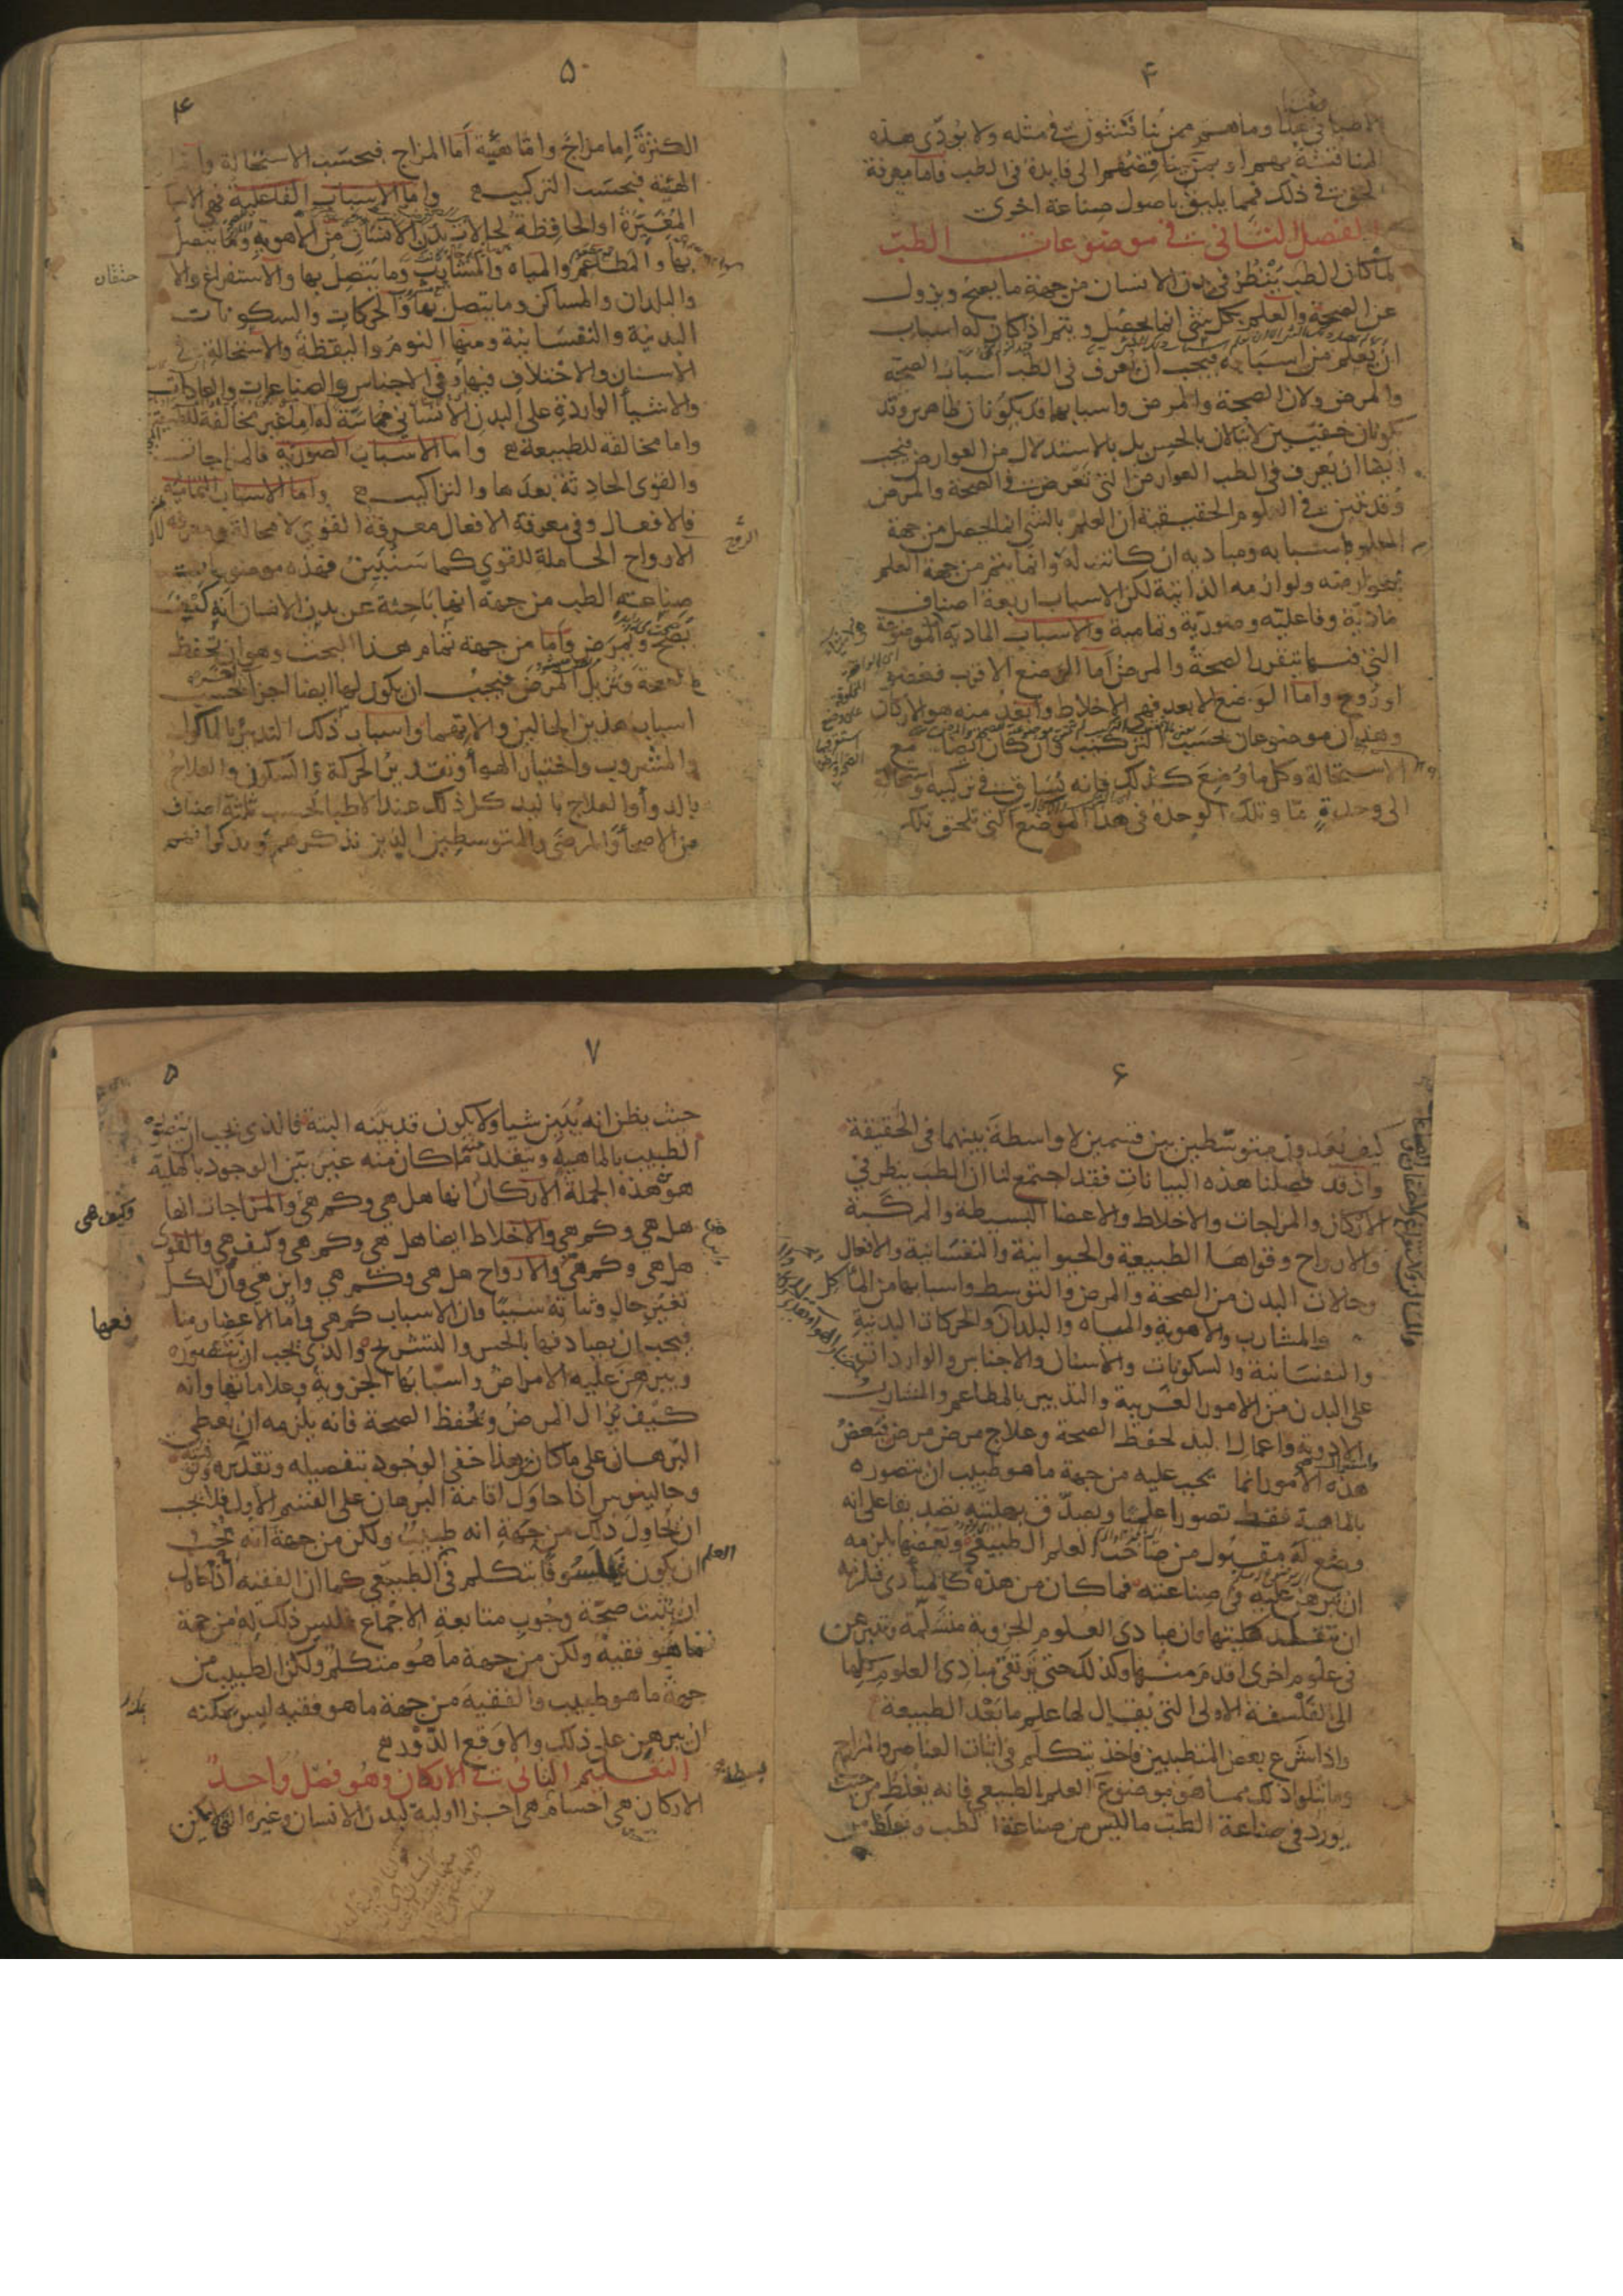 ۴
الاطباء في هذا وما هم ممن يناقشون في مثله ولا يؤدي هذه
المناقشة بهم او بمن يناقضهم الى فايدة في الطب فاما معرفة
الحق في ذلك فمما يليق باصول صناعة اخرى
الفصل الثاني في موضوعات الطب
لما كان الطب ينظر في بدن الانسان من جهة ما يصح ويزول
عن الصحة والعلم بكل شي انما يحصل ويتم اذا كان له اسباب
ان يعلم من اسبابه فيجب ان يعرف في الطب اسباب الصحة
والمرض ولان الصحة والمرض واسبابهما قد يكونان ظاهرين وقد
يكونان خفيين لا ينالان بالحس بل بالاستدلال من العوارض فيجب
ايضا ان يعرف في الطب العوارض التي تعرض في الصحة والمرض
وقد تبين في العلوم الحقيقية ان العلم بالشي انما يحصل من جهة
العلم باسبابه ومباديه ان كانت له وانما يتم من جهة العلم
بعوارضه ولوازمه الذاتية لكن الاسباب اربعة اصناف
مادية وفاعلية وصورية وتمامية والاسباب المادية الموضوعة
التي فيها تتقرر الصحة والمرض اما الموضع الاقرب فعضو
او روح واما الموضع الابعد فهي الاخلاط وابعد منه هو الاركان
وهذان موضوعان بحسب التركيب وان كان ايضا مع
الاستحالة وكل ما وضع كذلك فانه يساق في تركيبه واستحالته
الى وحدة ما وتلك الوحدة في هذا الموضع التي تلحق تلك
۵
۴
الكثرة إما مزاج واما هيئة أما المزاج فبحسب الاستحالة واما
الهيئة فبحسب التركيب واما الاسباب الفاعلية فهي الاسباب
المغيرة او الحافظة لحالات بدن الانسان من الاهوية وما يتصل
بها والمطاعم والمياه والمشارب وما يتصل بها والاستفراغ والا
حتقان
والبلدان والمساكن وما يتصل بها والحركات والسكونات
البدنية والنفسانية ومنها النوم واليقظة والاستحالة في
الاسنان والاختلاف فيها وفي الاجناس والصناعات والعادات
والاشيأ الواردة على البدن الانساني مماسة له اما غير مخالفة للطبيعة
واما مخالفة للطبيعة واما الاسباب الصورية فالمزاجات
والقوى الحادثة بعدها والتراكيب واما الاسباب التمامية
فالافعال وفي معرفة الافعال معرفة القوى لا محالة ومعرفة
الارواح الحاملة للقوى كما سنبين فهذه موضوعات
صناعة الطب من جهة انها باحثة عن بدن الانسان انه كيف
يصح ويمرض واما من جهة تمام هذا البحث وهو ان تحفظ
الصحة وتزيل المرض فيجب ان يكون لها ايضا اجزا بحسب
اسباب هذين الحالين والاتهما واسباب ذلك التدبير بالماكول
والمشروب واختيار الهوأ وتقدير الحركة والسكون والعلاج
بالدوأ والعلاج باليد كل ذلك عند الاطبا بحسب ثلثة اصناف
من الاصحأ والمرضى والمتوسطين الذين نذكرهم ونذكر انهم
۶
كيف يعدون متوسطين بين قسمين لا واسطة بينهما في الحقيقة
واذ قد فصلنا هذه البيانات فقد اجتمع لنا ان الطب ينظر في
الاركان والمزاجات والاخلاط والاعضا البسيطة والمركبة
والارواح وقواها الطبيعية والحيوانية والنفسانية والافعال
وحالات البدن من الصحة والمرض والتوسط واسبابها من المأكل
والمشارب والاهوية والمياه والبلدان والحركات البدنية
والنفسانية والسكونات والاسنان والاجناس والواردات
على البدن من الامور الغريبة والتدبير بالمطاعم والمشارب
والادوية واعمال اليد لحفظ الصحة وعلاج مرض مرض فبعض
هذه الامور انما يجب عليه من جهة ما هو طبيب ان يتصوره
بالماهية فقط تصورا علميا ويصدق بهليته تصديقا على انه
وضع له مقبول من صاحب العلم الطبيعي وبعضها يلزمه
ان يبرهن عليه في صناعته فما كان من هذه كالمبادي فيلزمه
ان يتقلد هليتها فان مبادي العلوم الجزوية متسلمة وتتبرهن
في علوم اخرى اقدم منها وكذلك حتى ترتقي مبادي العلوم كلها
الى الفلسفة الاولى التي يقال لها علم ما بعد الطبيعة
واذا شرع بعض المتطببين فاخذ يتكلم في اثبات العناصر والمزاج
وما يتلو ذلك مما هو موضوع العلم الطبيعي فانه يغلط من حيث
يورد في صناعة الطب ما ليس من صناعة الطب ويغلط من
۷
۵
حيث يظن انه يبين شيا ولا يكون قد بينه البتة فالذي يجب ان يتصوره
الطبيب بالماهية ويتقلد ما كان منه غير بين الوجود بالهلية
هو هذه الجملة الاركان انها هل هي وكم هي والمزاجات انها
وكيف هي
هل هي وكم هي والاخلاط ايضا هل هي وكم هي وكيف هي والقوى
هل هي وكم هي والارواح هل هي وكم هي واين هي وان لكل
تغير حال وثباته سببا وان الاسباب كم هي واما الاعضا ومنا
فعها
فيجب ان يصادفها بالحس والتشريح والذي يجب ان يتصوره
ويبرهن عليه الامراض واسبابها الجزوية وعلاماتها وانه
كيف يزال المرض ويحفظ الصحة فانه يلزمه ان يعطي
البرهان على ما كان من هذا خفي الوجود بتفصيله وتقديره
وجالينوس اذا حاول اقامة البرهان على القسم الاول فلا يجب
ان يحاول ذلك من جهة انه طبيب ولكن من جهة انه يحب
ان يكون فيلسوفا يتكلم في العلم الطبيعي كما ان الفقيه اذا حاول
ان يثبت صحة وجوب متابعة الاجماع فليس ذلك له من جهة
ما هو فقيه ولكن من جهة ما هو متكلم ولكن الطبيب من
جهة ما هو طبيب والفقيه من جهة ما هو فقيه ليس يمكنه
ان يبرهن على ذلك والا وقع الدور
التعليم الثاني في الاركان وهو فصل واحد
الاركان هي اجسام هي اجزا اولية لبدن الانسان وغيره التي لا يمكن
بسيطة